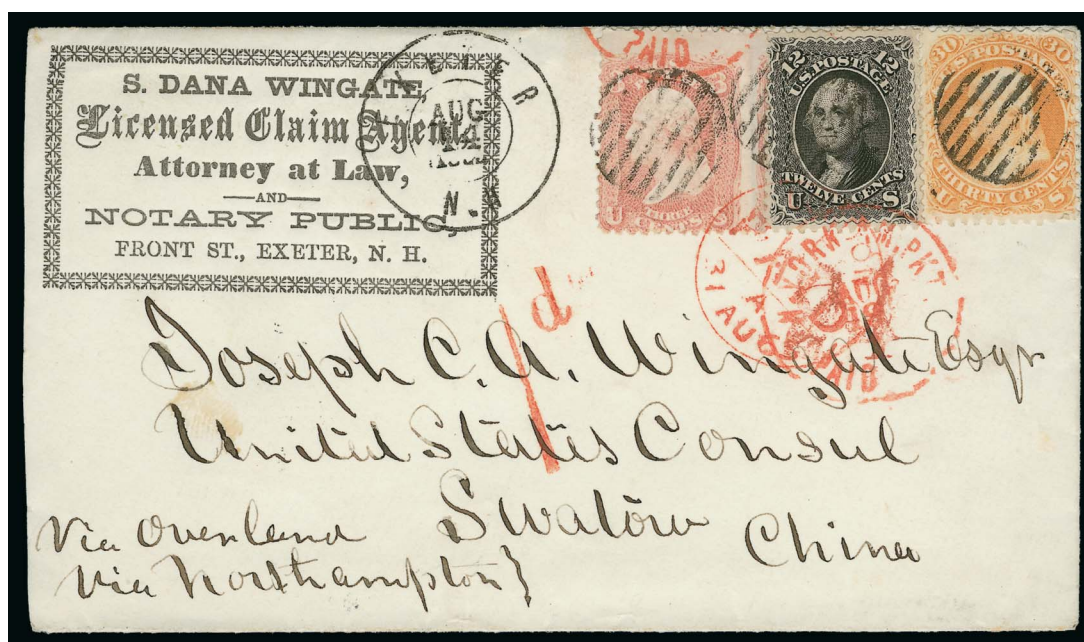 S. DANA WINGATE
Licensed Claim Agent
Attorney at Law,
AND
NOTARY PUBLIC,
FRONT ST., EXETER, N. H.
EXETER
AUG
14
N.H
PAID
3
U THREE S
12 12
U.S. POSTAGE
TWELVE CENTS
U S
30 30
U.S. POSTAGE
THIRTY CENTS
U S
PKT
31 AUG
PAID
1d
Joseph C. A. Wingate Esqr
United States Consul
Swatow
China
Via Overland
Via Northampton}